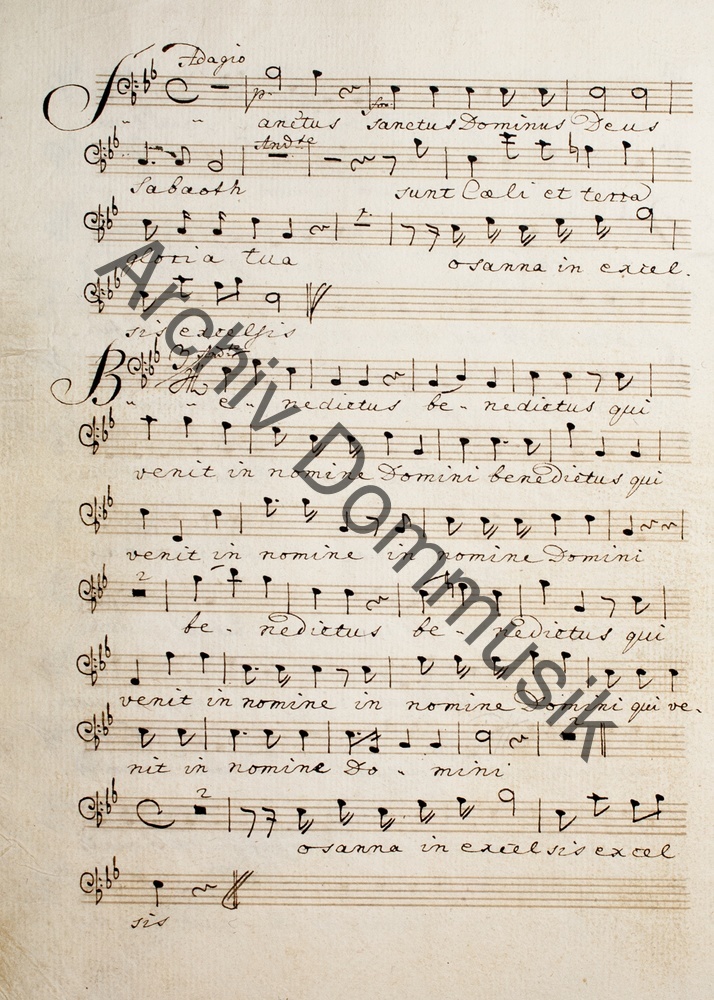 Adagio
p. for.
Sanctus sanctus Dominus Deus
Andte
Sabaoth sunt Cœli et terra
gloria tua osanna in excel.
sis excelsis
Be - nedictus be - nedictus qui
venit in nomine Domini benedictus qui
venit in nomine in nomine Domini
2
be - nedictus be - nedictus qui
venit in nomine in nomine Domini qui ve-
nit in nomine Do - mini
2
osanna in excelsis excel
sis
Archiv Dommusik